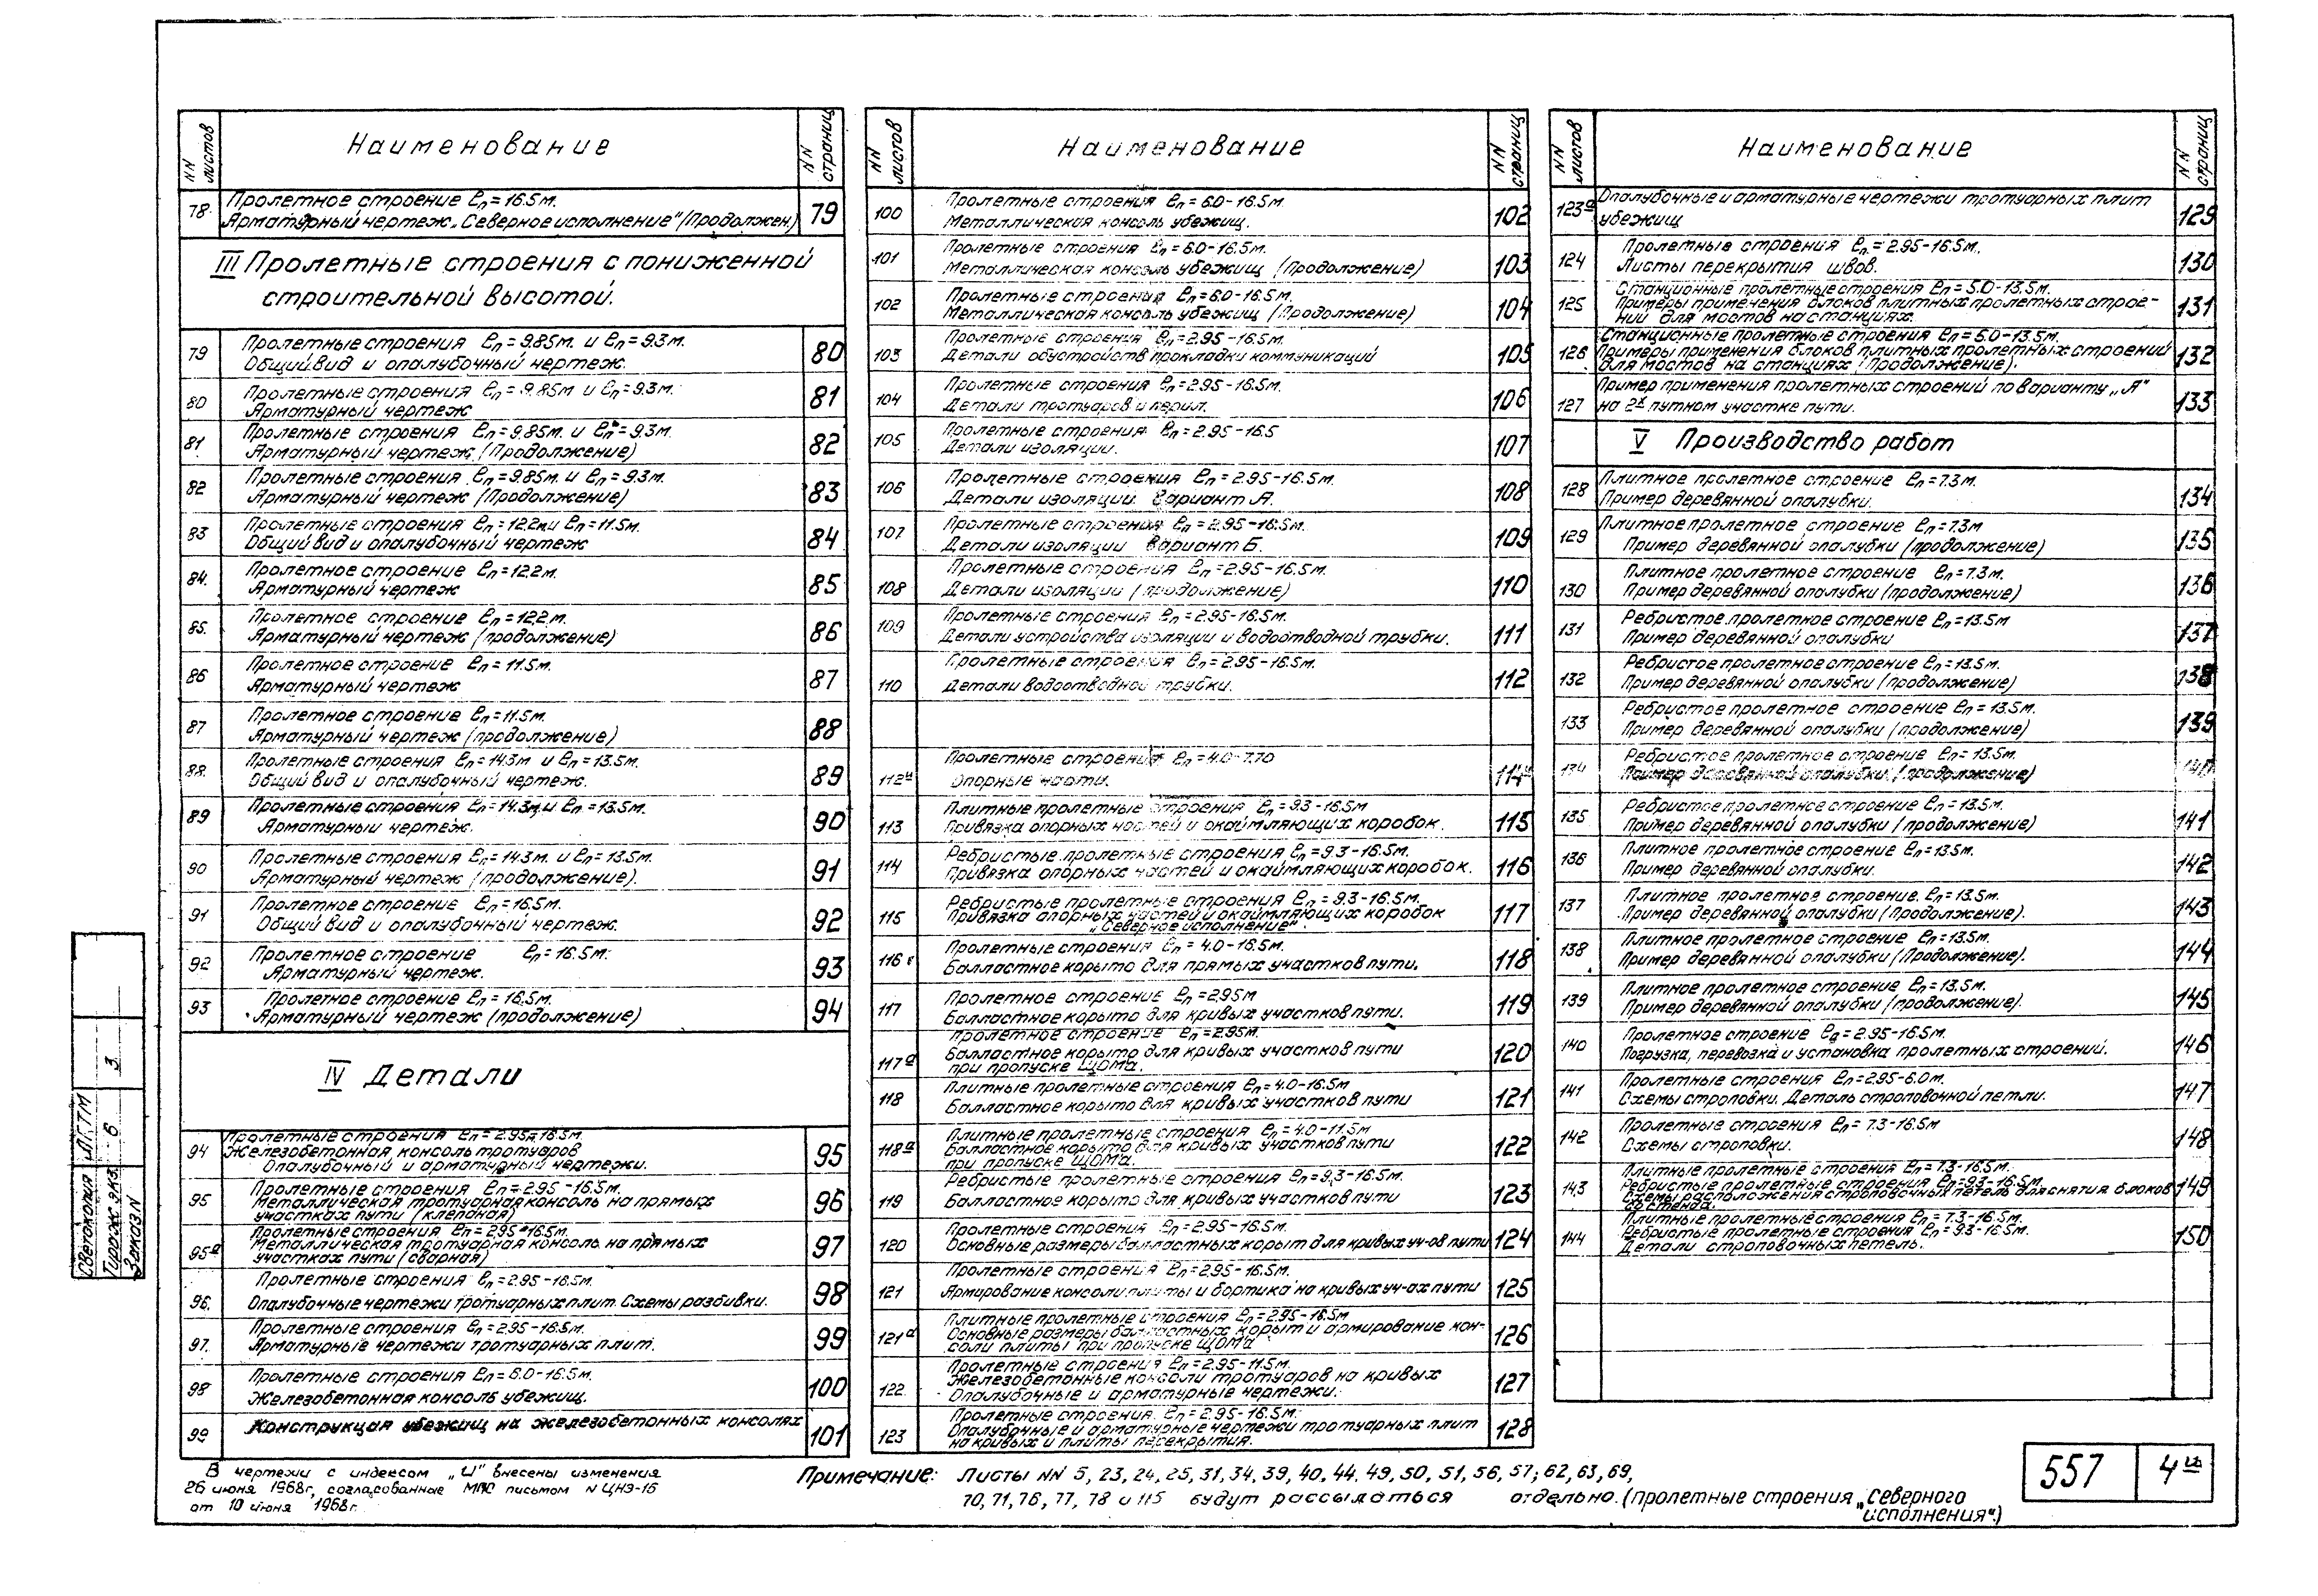 NN листов
Наименование
NN страниц
78. Пролетное строение ℓп = 16.5м.
Арматурный чертеж „Северное исполнение" (Продолжен.) 79
III Пролетные строения с пониженной
строительной высотой.
79 Пролетные строения ℓп = 9.85м. и ℓп = 9.3м.
Общий вид и опалубочный чертеж. 80
80 Пролетные строения ℓп = 9.85м и ℓп = 9.3м.
Арматурный чертеж 81
81. Пролетные строения ℓп = 9.85м. и ℓп = 9.3м.
Арматурный чертеж (Продолжение) 82
82 Пролетные строения ℓп = 9.85м. и ℓп = 9.3м.
Арматурный чертеж (Продолжение) 83
83 Пролетные строения ℓп = 12.2м и ℓп = 11.5м.
Общий вид и опалубочный чертеж 84
84. Пролетное строение ℓп = 12.2м.
Арматурный чертеж 85
85. Пролетное строение ℓп = 12.2м.
Арматурный чертеж (продолжение) 86
86 Пролетное строение ℓп = 11.5м.
Арматурный чертеж 87
87 Пролетное строение ℓп = 11.5м.
Арматурный чертеж (продолжение) 88
88. Пролетные строения ℓп = 14.3м и ℓп = 13.5м.
Общий вид и опалубочный чертеж. 89
89 Пролетные строения ℓп = 14.3м и ℓп = 13.5м.
Арматурный чертеж. 90
90 Пролетные строения ℓп = 14.3м. и ℓп = 13.5м.
Арматурный чертеж (продолжение). 91
91 Пролетное строение ℓп = 16.5м.
Общий вид и опалубочный чертеж. 92
92 Пролетное строение ℓп = 16.5м.
Арматурный чертеж. 93
93 Пролетное строение ℓп = 16.5м.
Арматурный чертеж (продолжение) 94
IV Детали
94 Пролетные строения ℓп = 2.95-16.5м.
Железобетонная консоль тротуаров
Опалубочный и арматурный чертежи. 95
95 Пролетные строения ℓп = 2.95-16.5м.
Металлическая тротуарная консоль на прямых
участках пути (клепаная) 96
95а Пролетные строения ℓп = 2.95-16.5м.
Металлическая тротуарная консоль на прямых
участках пути (сварная) 97
96. Пролетные строения ℓп = 2.95-16.5м.
Опалубочные чертежи тротуарных плит. Схемы разбивки. 98
97. Пролетные строения ℓп = 2.95-16.5м.
Арматурные чертежи тротуарных плит. 99
98 Пролетные строения ℓп = 6.0-16.5м.
Железобетонная консоль убежищ. 100
99 Конструкция убежищ на железобетонных консолях 101
NN листов
Наименование
NN страниц
100 Пролетные строения ℓп = 6.0-16.5м.
Металлическая консоль убежищ. 102
101 Пролетные строения ℓп = 6.0-16.5м.
Металлическая консоль убежищ (Продолжение) 103
102 Пролетные строения ℓп = 6.0-16.5м.
Металлическая консоль убежищ (Продолжение) 104
103 Пролетные строения ℓп = 2.95-16.5м.
Детали обустройств прокладки коммуникаций 105
104 Пролетные строения ℓп = 2.95-16.5м.
Детали тротуаров и перил. 106
105 Пролетные строения ℓп = 2.95-16.5
Детали изоляции. 107
106 Пролетные строения ℓп = 2.95-16.5м.
Детали изоляции. Вариант А. 108
107 Пролетные строения ℓп = 2.95-16.5м.
Детали изоляции Вариант Б. 109
108 Пролетные строения ℓп = 2.95-16.5м.
Детали изоляции (продолжение) 110
109 Пролетные строения ℓп = 2.95-16.5м.
Детали устройства изоляции и водоотводной трубки. 111
110 Пролетные строения ℓп = 2.95-16.5м.
Детали водоотводной трубки. 112
112и Пролетные строения ℓп = 4.0-7.70
Опорные части. 114и
113 Плитные пролетные строения ℓп = 9.3-16.5м
Привязка опорных частей и окаймляющих коробок. 115
114 Ребристые пролетные строения ℓп = 9.3-16.5м.
Привязка опорных частей и окаймляющих коробок. 116
115 Ребристые пролетные строения ℓп = 9.3-16.5м.
Привязка опорных частей и окаймляющих коробок
„Северное исполнение". 117
116 Пролетные строения ℓп = 4.0-16.5м.
Балластное корыто для прямых участков пути. 118
117 Пролетное строение ℓп = 2.95м
Балластное корыто для кривых участков пути. 119
117а Пролетное строение ℓп = 2.95м.
Балластное корыто для кривых участков пути
при пропуске ЩОМа. 120
118 Плитные пролетные строения ℓп = 4.0-16.5м
Балластное корыто для кривых участков пути 121
118а Плитные пролетные строения ℓп = 4.0-11.5м
Балластное корыто для кривых участков пути
при пропуске ЩОМа. 122
119 Ребристые пролетные строения ℓп = 9.3-16.5м.
Балластное корыто для кривых участков пути 123
120 Пролетные строения ℓп = 2.95-16.5м.
Основные размеры балластных корыт для кривых уч-ов пути 124
121 Пролетные строения ℓп = 2.95-16.5м.
Армирование консоли плиты и бортика на кривых уч-ах пути 125
121а Плитные пролетные строения ℓп = 2.95-16.5м
Основные размеры балластных корыт и армирование кон-
соли плиты при пропуске ЩОМа 126
122 Пролетные строения ℓп = 2.95-11.5м.
Железобетонные консоли тротуаров на кривых
Опалубочные и арматурные чертежи. 127
123 Пролетные строения ℓп = 2.95-16.5м.
Опалубочные и арматурные чертежи тротуарных плит
на кривых и плиты перекрытия. 128
NN листов
Наименование
NN страниц
123а Опалубочные и арматурные чертежи тротуарных плит
убежищ 129
124 Пролетные строения ℓп = 2.95-16.5м.
Листы перекрытия швов. 130
125 Станционные пролетные строения ℓп = 5.0-13.5м.
Примеры применения блоков плитных пролетных строе-
ний для мостов на станциях. 131
126 Станционные пролетные строения ℓп = 5.0-13.5м.
Примеры применения блоков плитных пролетных строений
для мостов на станциях (Продолжение). 132
127 Пример применения пролетных строений по варианту „А"
на 2х путном участке пути. 133
V Производство работ
128 Плитное пролетное строение ℓп = 7.3м.
Пример деревянной опалубки. 134
129 Плитное пролетное строение ℓп = 7.3м
Пример деревянной опалубки (продолжение) 135
130 Плитное пролетное строение ℓп = 7.3м.
Пример деревянной опалубки (продолжение) 136
131 Ребристое пролетное строение ℓп = 13.5м
Пример деревянной опалубки 137
132 Ребристое пролетное строение ℓп = 13.5м.
Пример деревянной опалубки (продолжение) 138
133 Ребристое пролетное строение ℓп = 13.5м.
Пример деревянной опалубки (продолжение) 139
134 Ребристое пролетное строение ℓп = 13.5м.
Пример деревянной опалубки (продолжение) 140
135 Ребристое пролетное строение ℓп = 13.5м.
Пример деревянной опалубки (продолжение) 141
136 Плитное пролетное строение ℓп = 13.5м.
Пример деревянной опалубки. 142
137 Плитное пролетное строение ℓп = 13.5м.
Пример деревянной опалубки (Продолжение). 143
138 Плитное пролетное строение ℓп = 13.5м.
Пример деревянной опалубки (Продолжение). 144
139 Плитное пролетное строение ℓп = 13.5м.
Пример деревянной опалубки (продолжение). 145
140 Пролетное строение ℓп = 2.95-16.5м.
Погрузка, перевозка и установка пролетных строений. 146
141 Пролетные строения ℓп = 2.95-6.0м.
Схемы строповки. Деталь строповочной петли. 147
142 Пролетные строения ℓп = 7.3-16.5м
Схемы строповки. 148
143 Плитные пролетные строения ℓп = 7.3-16.5м.
Ребристые пролетные строения ℓп = 9.3-16.5м.
Схемы расположения строповочных петель для снятия блоков
со стенда. 149
144 Плитные пролетные строения ℓп = 7.3-16.5м.
Ребристые пролетные строения ℓп = 9.3-16.5м.
Детали строповочных петель. 150
В чертежи с индексом „И" внесены изменения
26 июня 1968г, согласованные МПС письмом N ЦНЭ-16
от 10 июня 1968г.
Примечание: Листы NN 5, 23, 24, 25, 31, 34, 39, 40, 44, 49, 50, 51, 56, 57, 62, 63, 69,
70, 71, 76, 77, 78 и 115 будут рассылаться отдельно. (пролетные строения „Северного
исполнения".)
557
4и
Светокопия ЛГТМ
Тираж экз. 6
Заказ N
3